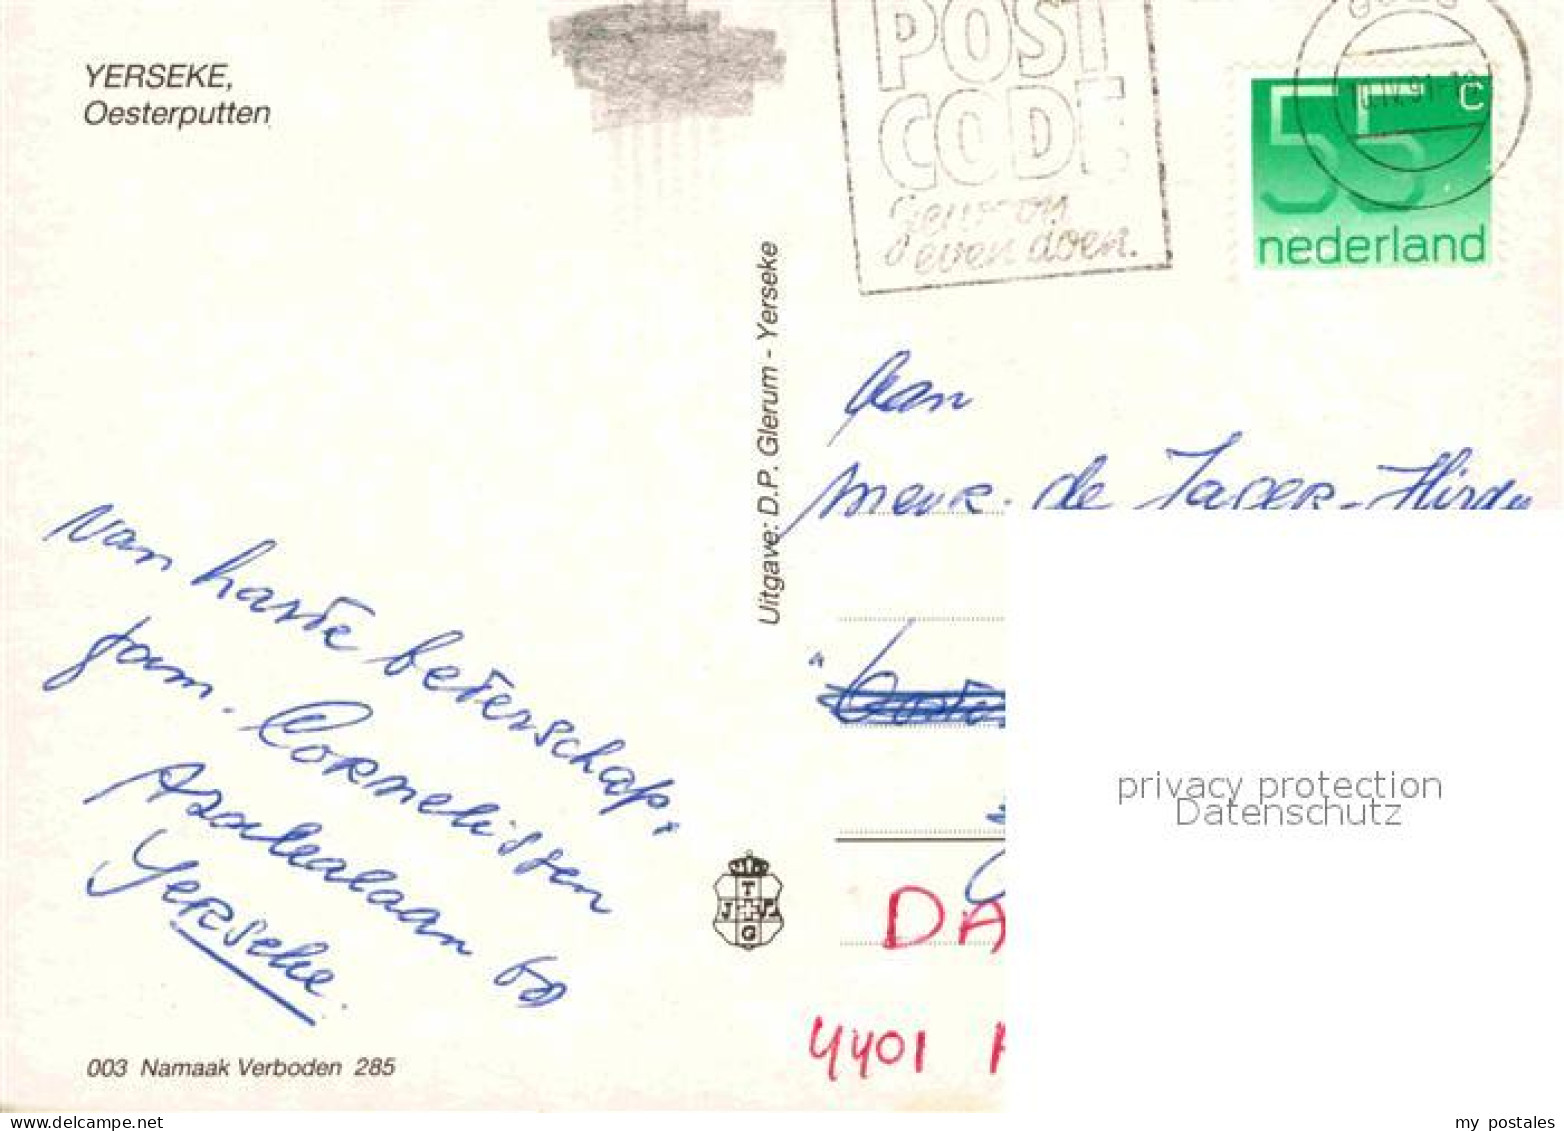 YERSEKE,
Oesterputten
POST
CODE
gewoon
even doen.
GOES
55 c
nederland
Uitgave: D.P. Glerum - Yerseke
Aan
Mevr. de
van harte beterschap.
fam. Cornelissen
Azalealaan 60
Yerseke.
T
J
G
DA
4401
privacy protection
Datenschutz
003 Namaak Verboden 285
my postales